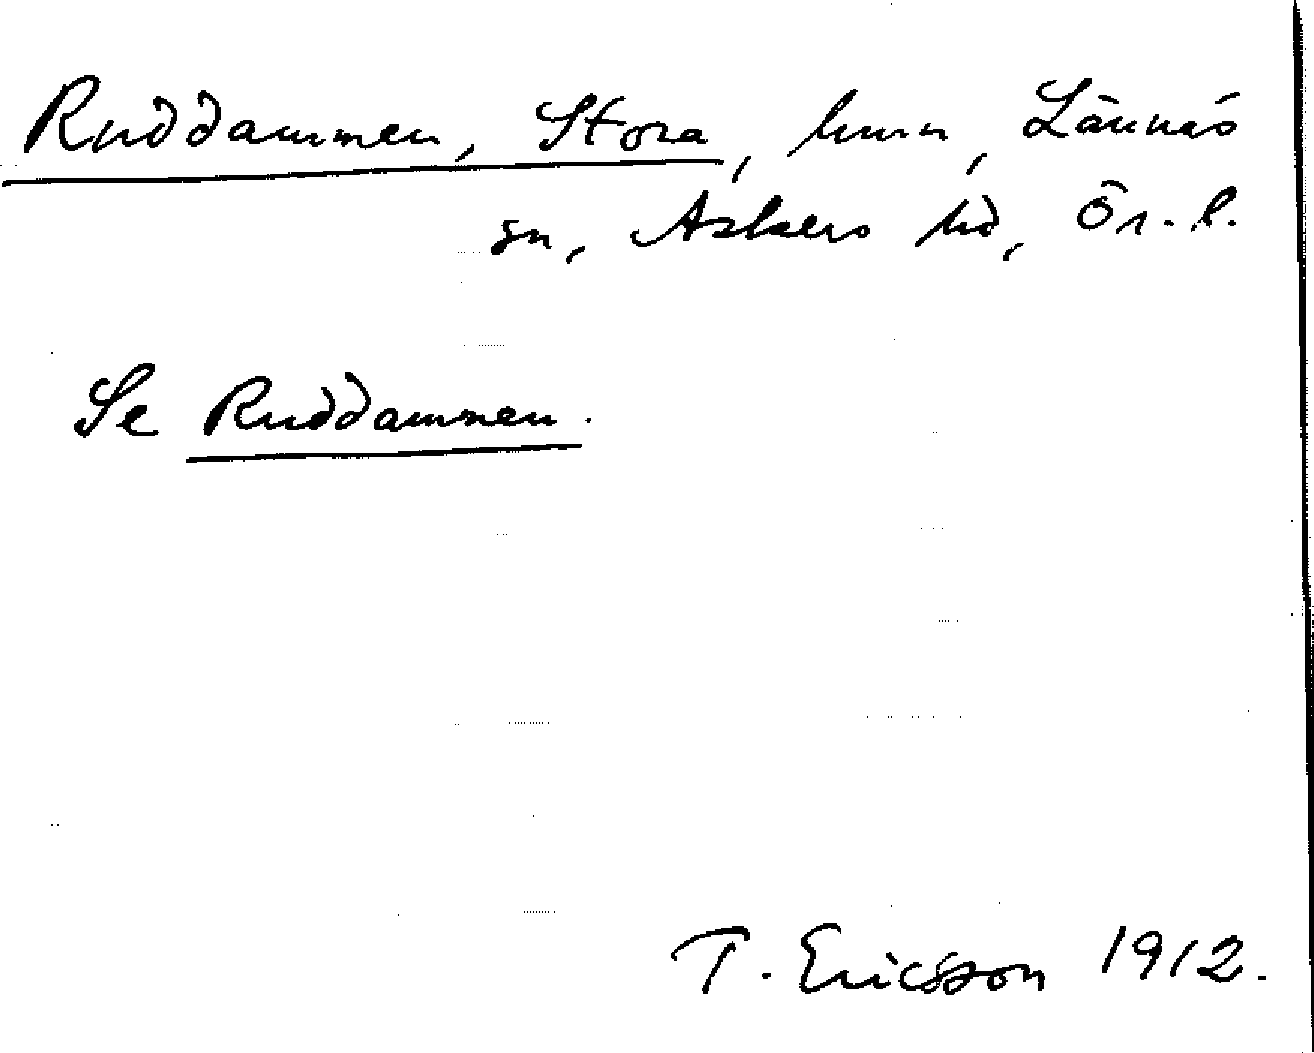 Ruddammen, Stora, hmn, Lännäs
sn, Askers hd, Ör. l.
Se Ruddammen.
T. Ericsson 1912.